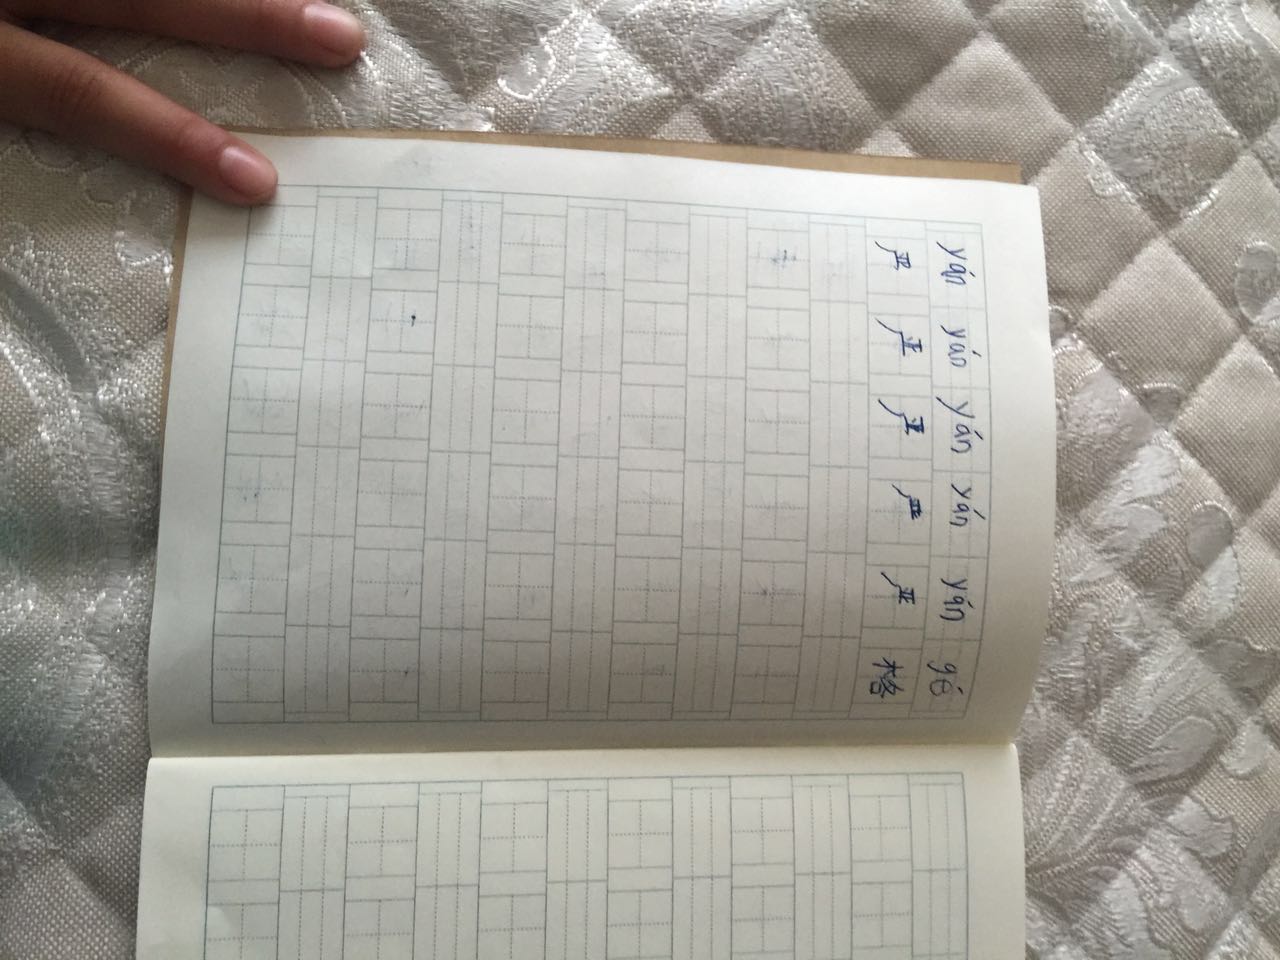 yán yán yán yán yán gé
严 严 严 严 严 格